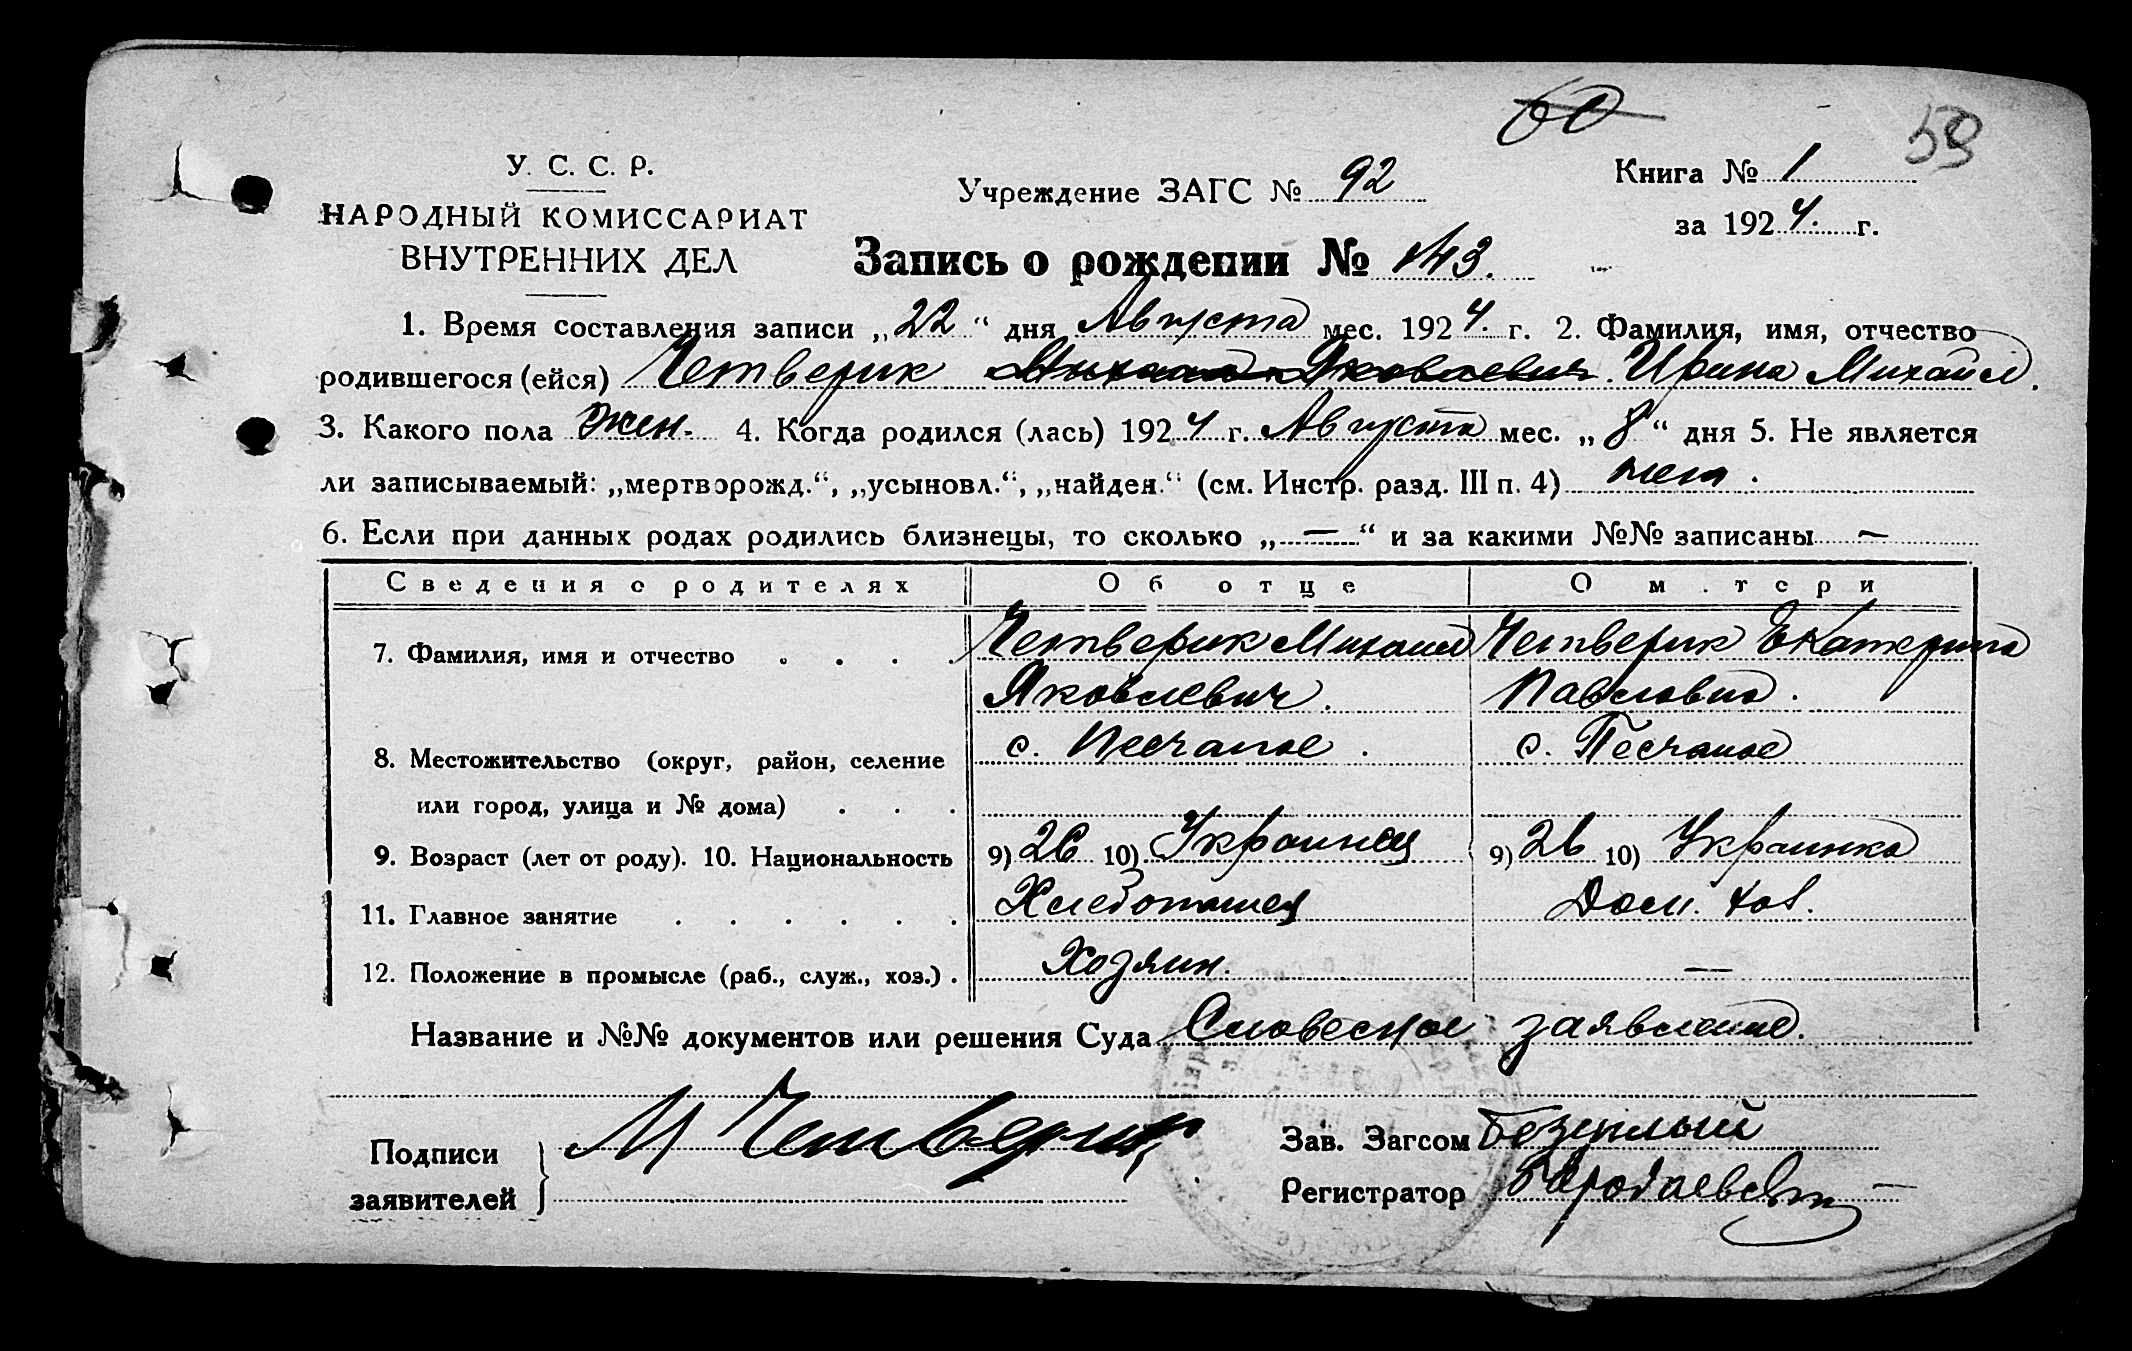 60
59
У. С. С. Р.
НАРОДНЫЙ КОМИССАРИАТ
ВНУТРЕННИХ ДЕЛ
Учреждение ЗАГС № 92
Книга № 1
за 1924. г.
Запись о рождении № 143.
1. Время составления записи „22“ дня Августа мес. 1924. г. 2. Фамилия, имя, отчество
родившегося (ейся) Четверик Михаил Яковлевич. Ирина Михайл.
3. Какого пола жен. 4. Когда родился (лась) 1924 г. Августа мес. „8“ дня 5. Не является
ли записываемый: „мертворожд.“, „усыновл.“, „найден.“ (см. Инстр. разд. III п. 4) нет.
6. Если при данных родах родились близнецы, то сколько „—“ и за какими №№ записаны —
Сведения о родителях Об отце О м.тери
7. Фамилия, имя и отчество . . . . Четверик Михаил Четверик Екатерина
Яковлевич. Павловна.
8. Местожительство (округ, район, селение с. Песчаное. с. Песчаное
или город, улица и № дома) . . .
9. Возраст (лет от роду). 10. Национальность 9) 26 10) Украинец 9) 26 10) Украинка
11. Главное занятие . . . . . . Хлебопашец Дом. хоз.
12. Положение в промысле (раб., служ., хоз.) . Хозяин. —
Название и №№ документов или решения Суда Словесное заявление.
Подписи
заявителей
М Четверик
Зав. Загсом
Регистратор